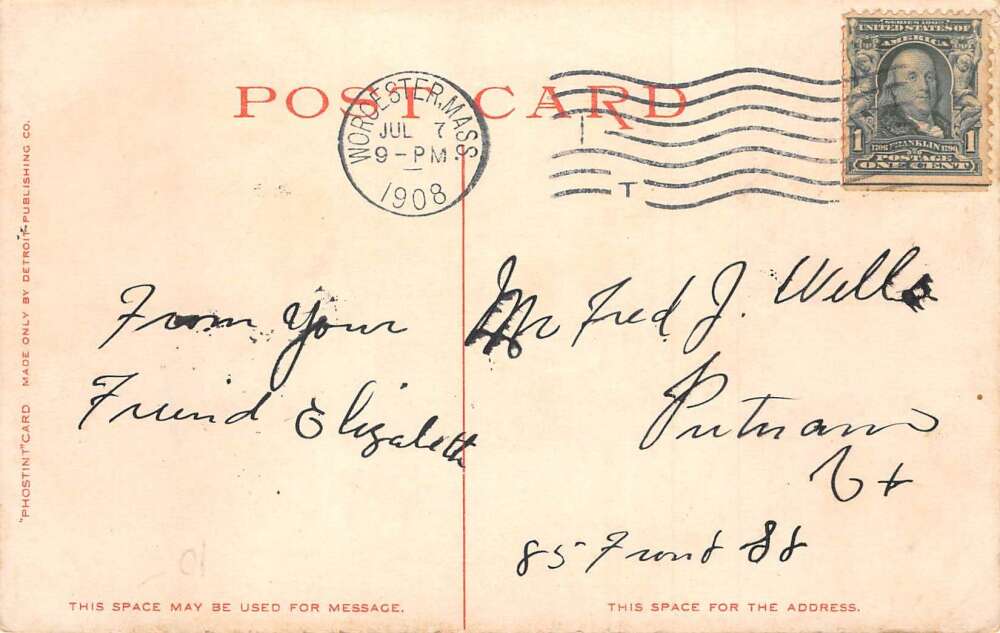 POST CARD
WORCESTER, MASS.
JUL 7
9-PM
1908
T
SERIES 1902
UNITED STATES OF
AMERICA
1 1
1706 FRANKLIN 1790
POSTAGE
ONE CENT
"PHOSTINT" CARD MADE ONLY BY DETROIT PUBLISHING CO.
From Your
Friend Elizabeth
Mr Fred J. Wells
Putnam
Ct
85 Front St
THIS SPACE MAY BE USED FOR MESSAGE.
THIS SPACE FOR THE ADDRESS.